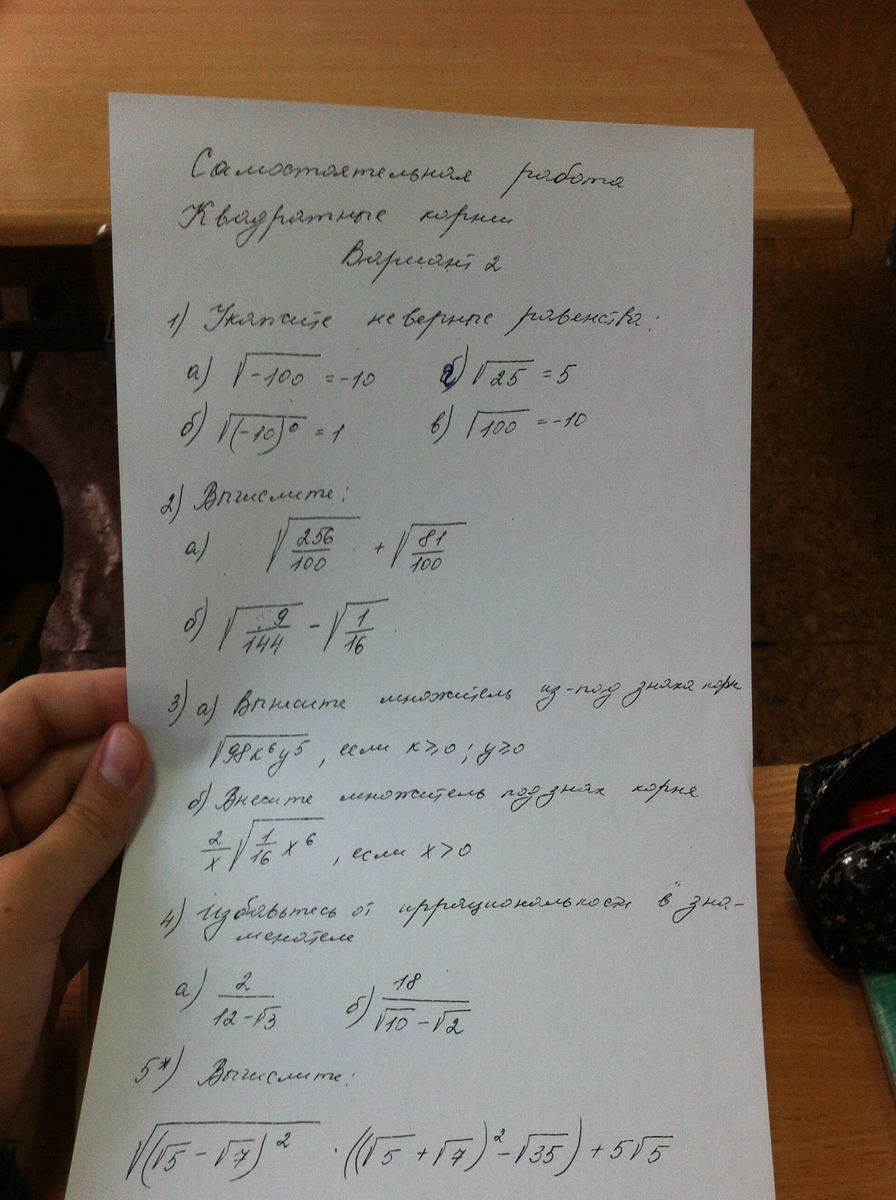 Самостоятельная работа
Квадратные корни
Вариант 2
1) Укажите неверные равенства:
а) √(-100) = -10 б) √25 = 5
б) √((-10)⁰) = 1 в) √100 = -10
2) Вычислите:
а) √(256/100) + √(81/100)
б) √(9/144) - √(1/16)
3) а) Вынесите множитель из-под знака корн
√(98x⁶y⁵), если x≥0; y≥0
б) Внесите множитель под знак корня
2/x √(1/16 x⁶), если x>0
4) Избавьтесь от иррациональности в зна-
менателе
а) 2/(12-√3) б) 18/(√10-√2)
5*) Вычислите:
√((√5-√7)²) · ((√5+√7)²-√35)+5√5